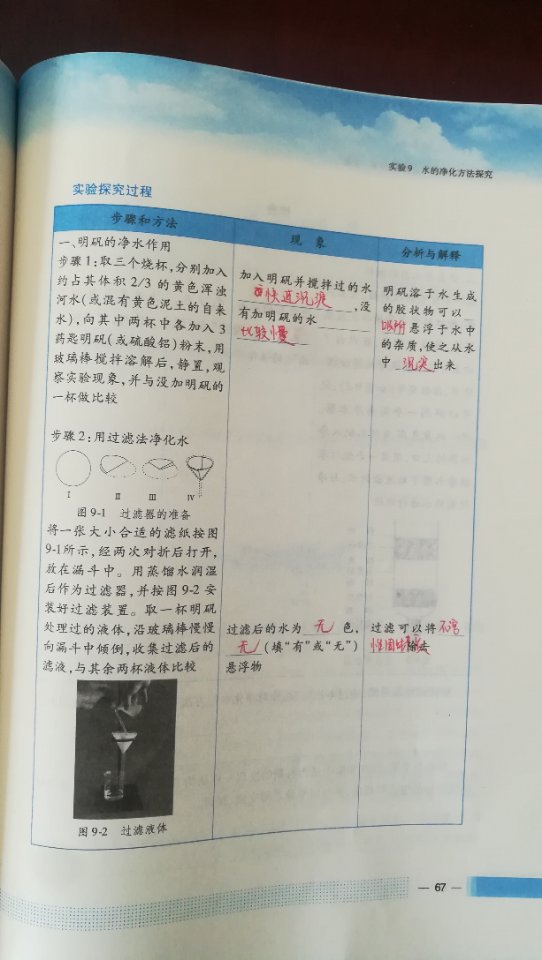 实验9 水的净化方法探究
实验探究过程
步骤和方法
现 象
分析与解释
一、明矾的净水作用
步骤1:取三个烧杯,分别加入
约占其体积2/3的黄色浑浊
河水(或混有黄色泥土的自来
水),向其中两杯中各加入3
药匙明矾(或硫酸铝)粉末,用
玻璃棒搅拌溶解后,静置,观
察实验现象,并与没加明矾的
一杯做比较
步骤2:用过滤法净化水
Ⅰ Ⅱ Ⅲ Ⅳ
图9-1 过滤器的准备
将一张大小合适的滤纸按图
9-1所示,经两次对折后打开,
放在漏斗中。用蒸馏水润湿
后作为过滤器,并按图9-2安
装好过滤装置。取一杯明矾
处理过的液体,沿玻璃棒慢慢
向漏斗中倾倒,收集过滤后的
滤液,与其余两杯液体比较
图9-2 过滤液体
加入明矾并搅拌过的水
快速沉淀,没
有加明矾的水
比较慢
过滤后的水为 无 色,
无 (填“有”或“无”)
悬浮物
明矾溶于水生成
的胶状物可以
吸附悬浮于水中
的杂质,使之从水
中 沉淀 出来
过滤可以将不溶
性固体 除去
— 67 —